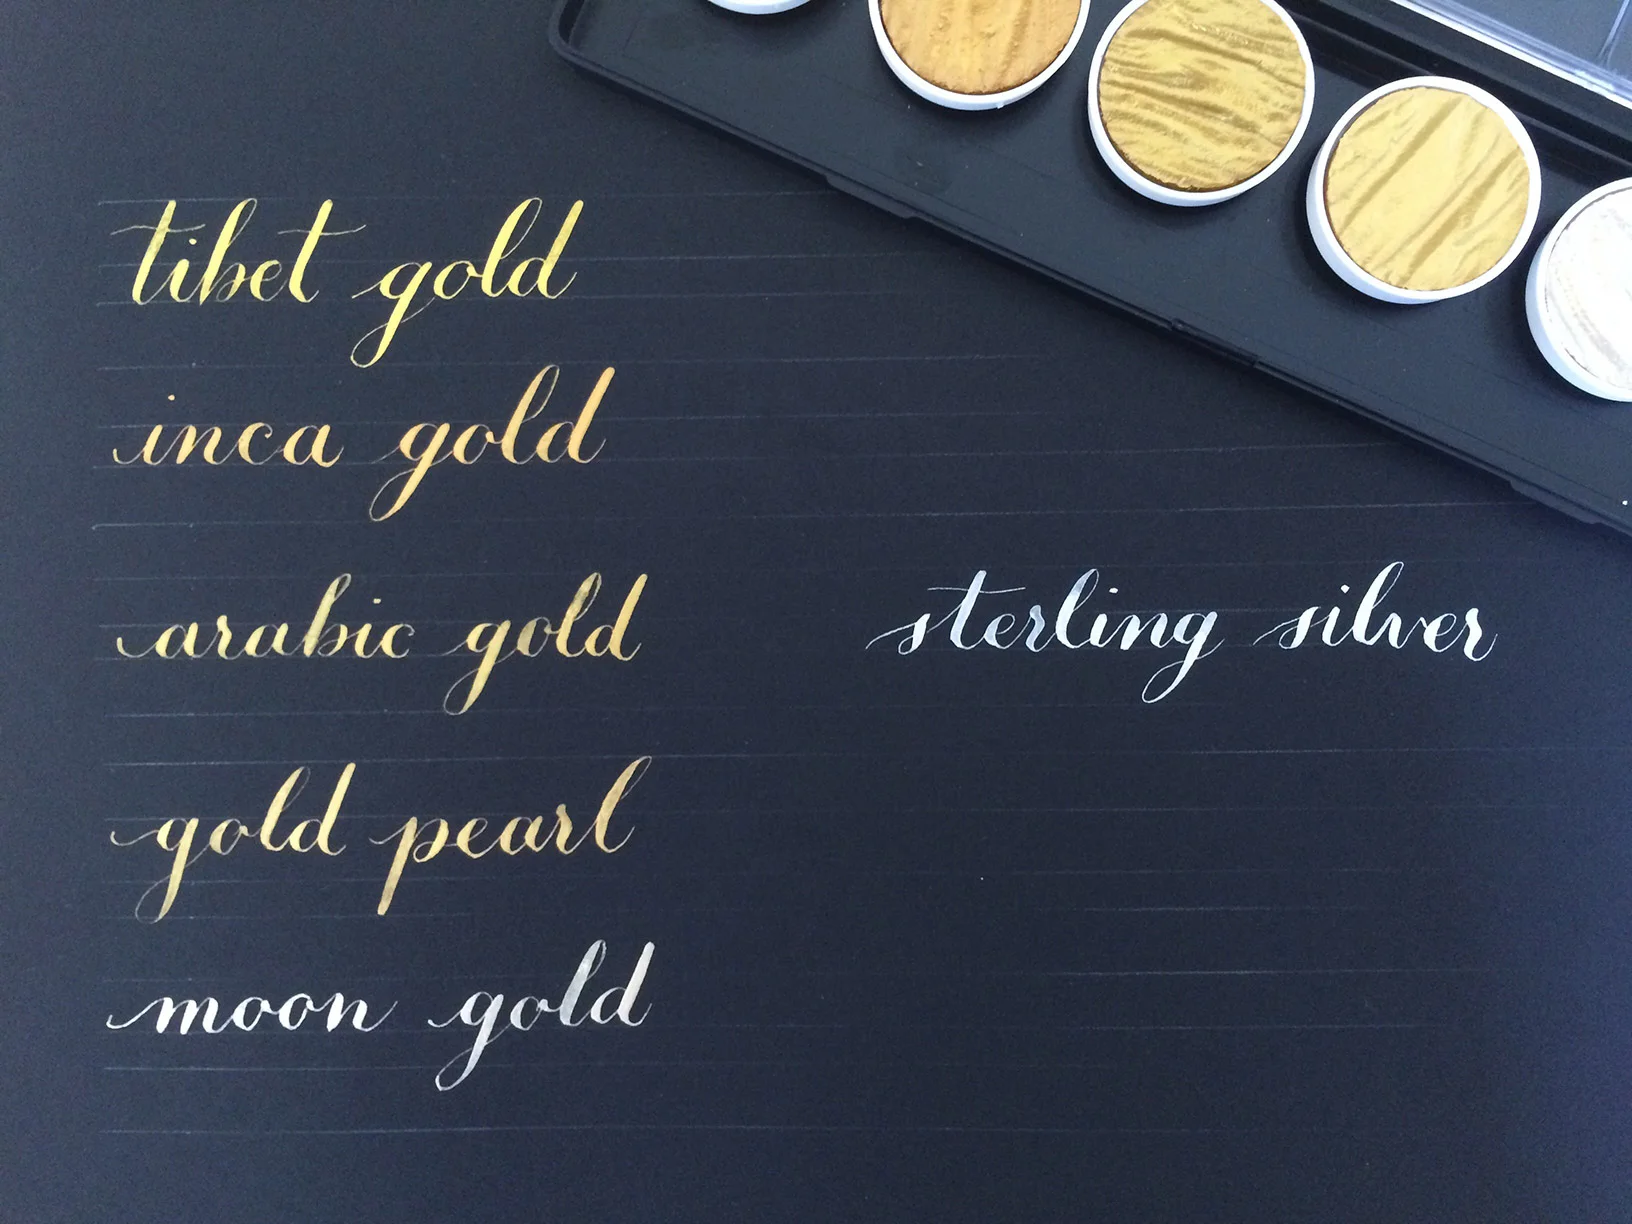 tibet gold
inca gold
arabic gold
sterling silver
gold pearl
moon gold